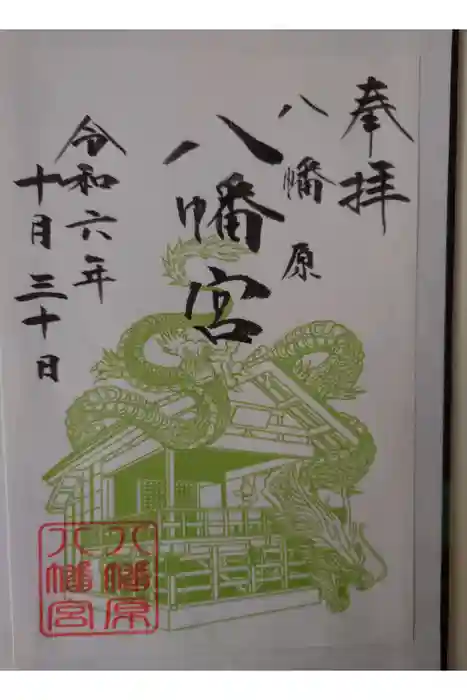 奉拝
八幡原
八幡宮
令和六年
十月三十日
八幡原
八幡宮